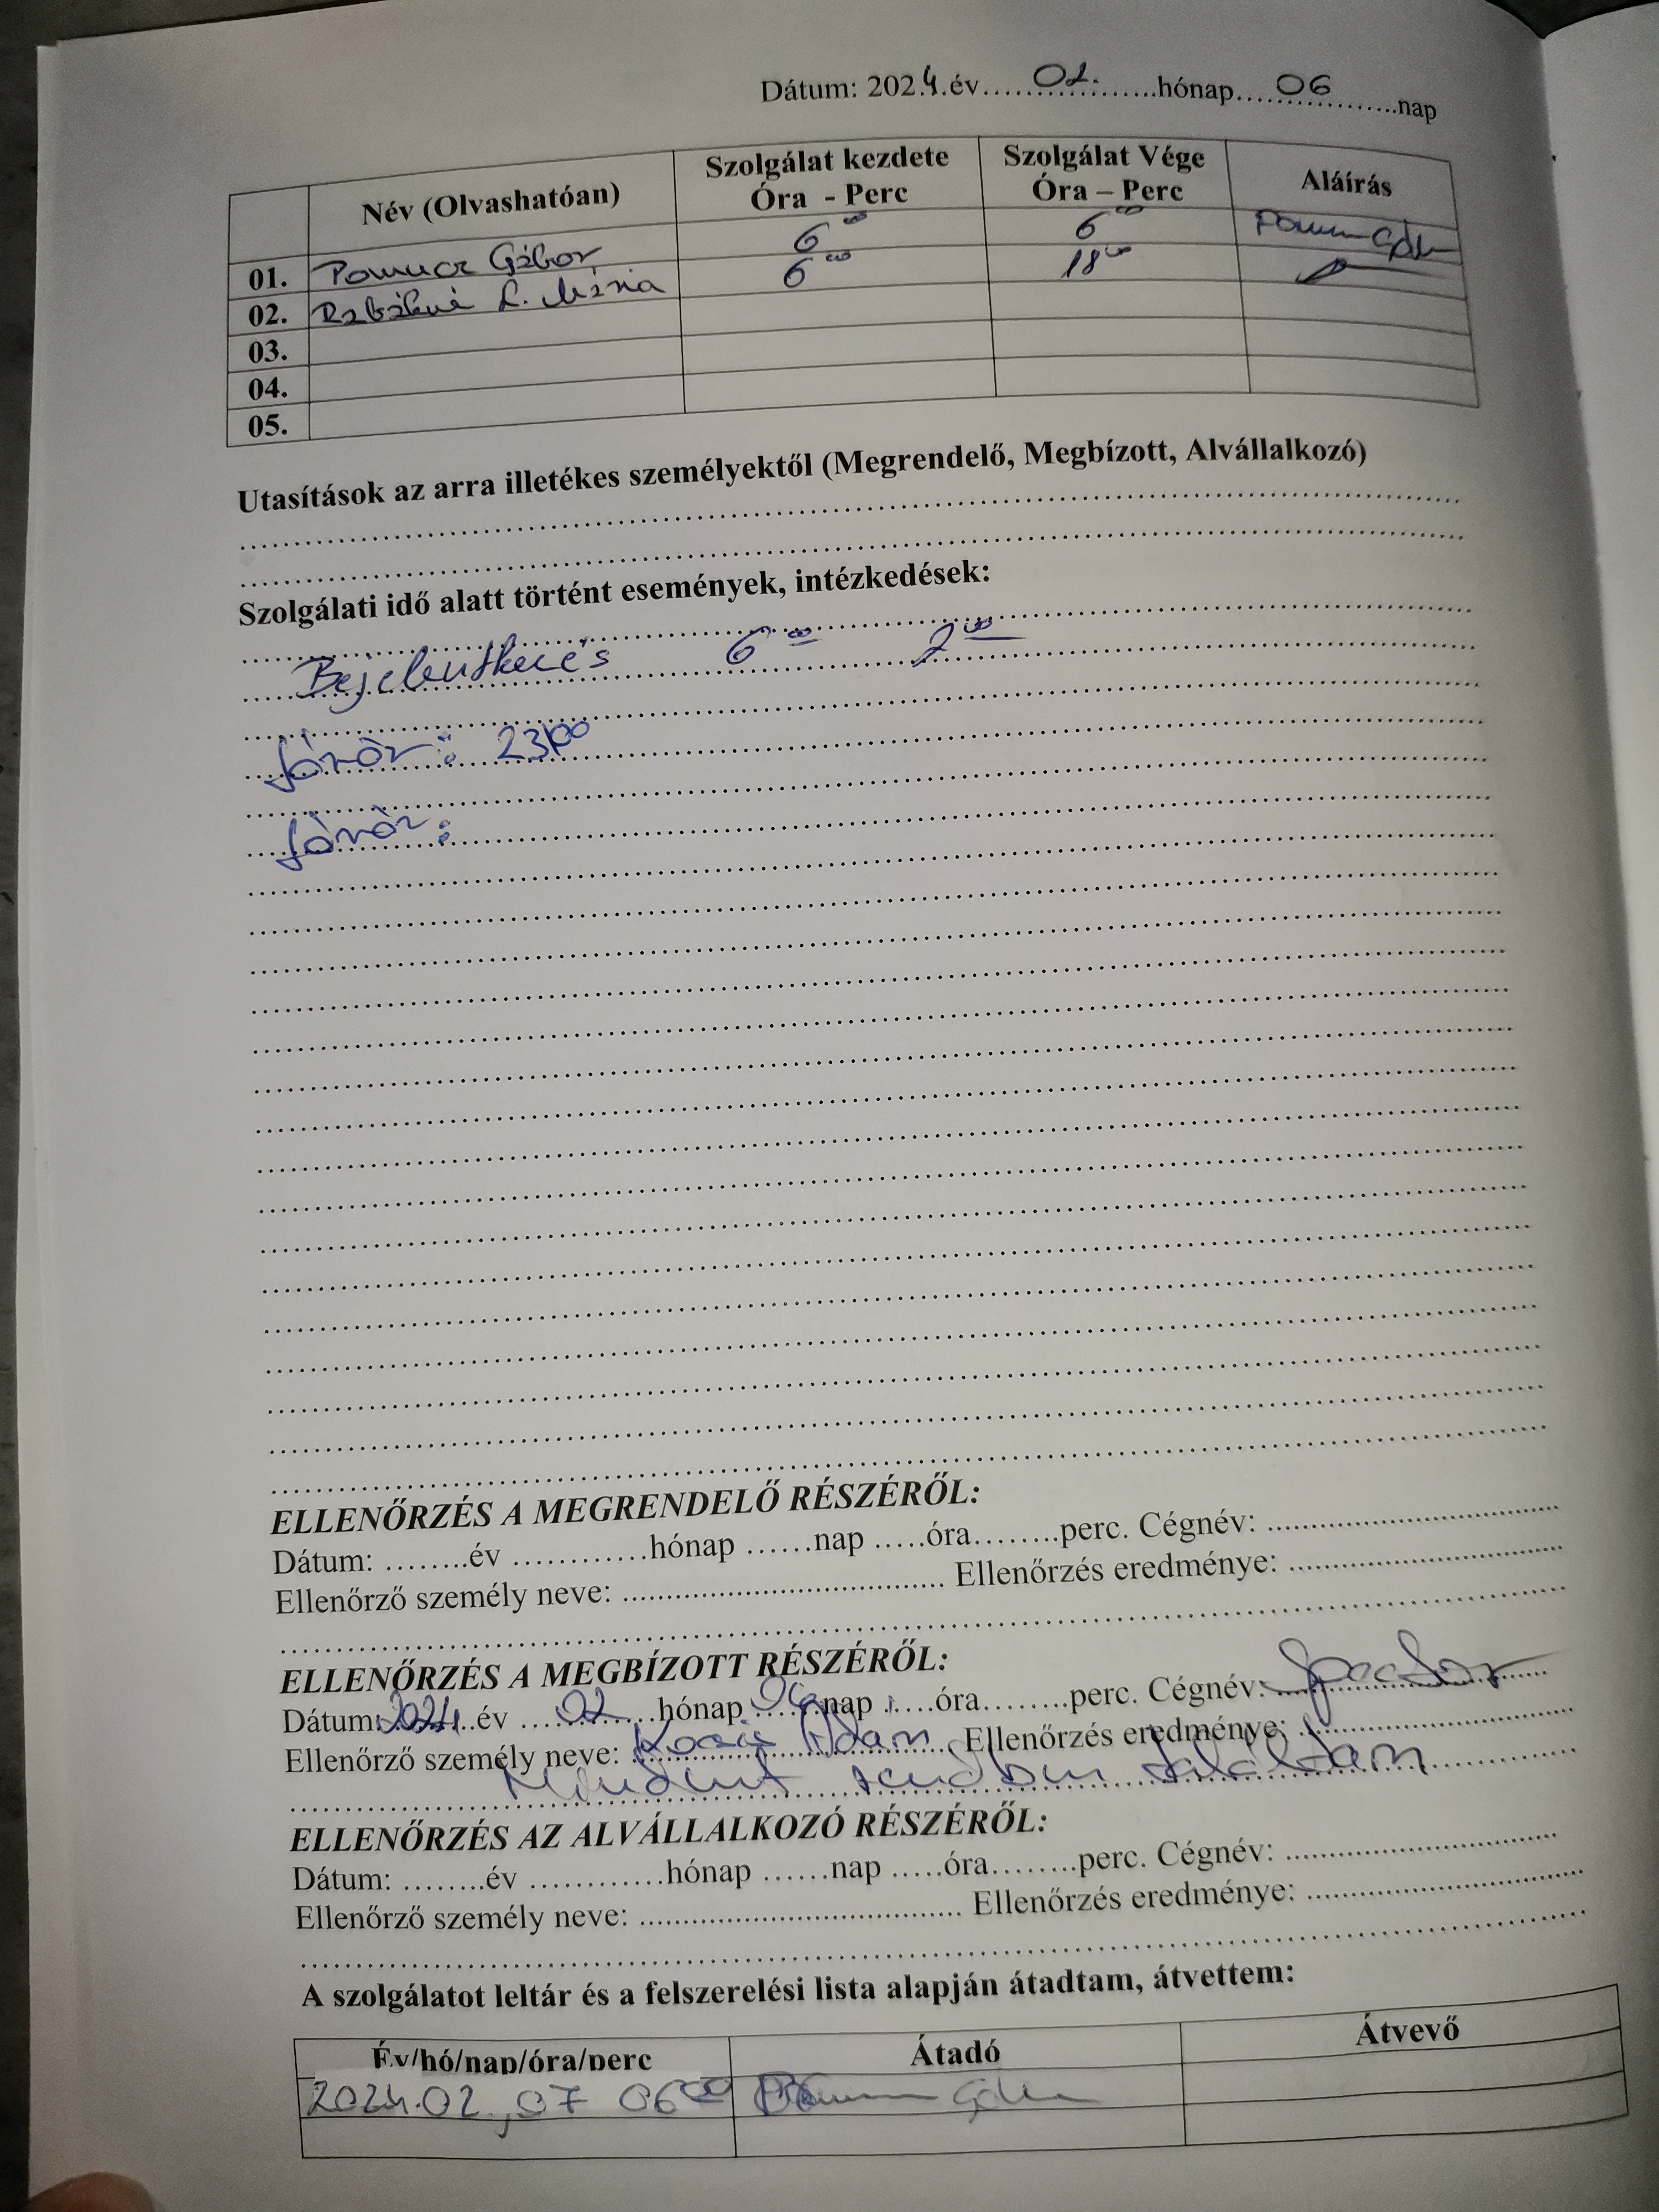 Dátum: 2024.év 02. hónap 06 nap
Név (Olvashatóan) Szolgálat kezdete Óra - Perc Szolgálat Vége Óra – Perc Aláírás
01. Gábor 6 00 6 00
02. Mária 6 00 18 00
03.
04.
05.
Utasítások az arra illetékes személyektől (Megrendelő, Megbízott, Alvállalkozó)
Szolgálati idő alatt történt események, intézkedések:
Bejelentkezés 6 00
Járőr: 23 00
Járőr:
ELLENŐRZÉS A MEGRENDELŐ RÉSZÉRŐL:
Dátum: ........év ............hónap ......nap .....óra........perc. Cégnév: ................................
Ellenőrző személy neve: .................................... Ellenőrzés eredménye: ..............................
ELLENŐRZÉS A MEGBÍZOTT RÉSZÉRŐL:
Dátum: 2024 év 02 hónap 06 nap .....óra........perc. Cégnév:
Ellenőrző személy neve: Ádám Ellenőrzés eredménye:
Mindent rendben találtam
ELLENŐRZÉS AZ ALVÁLLALKOZÓ RÉSZÉRŐL:
Dátum: ........év ............hónap ......nap .....óra........perc. Cégnév: ..............................
Ellenőrző személy neve: .................................... Ellenőrzés eredménye: ..............................
A szolgálatot leltár és a felszerelési lista alapján átadtam, átvettem:
Év/hó/nap/óra/perc Átadó Átvevő
2024.02.,07 06 00